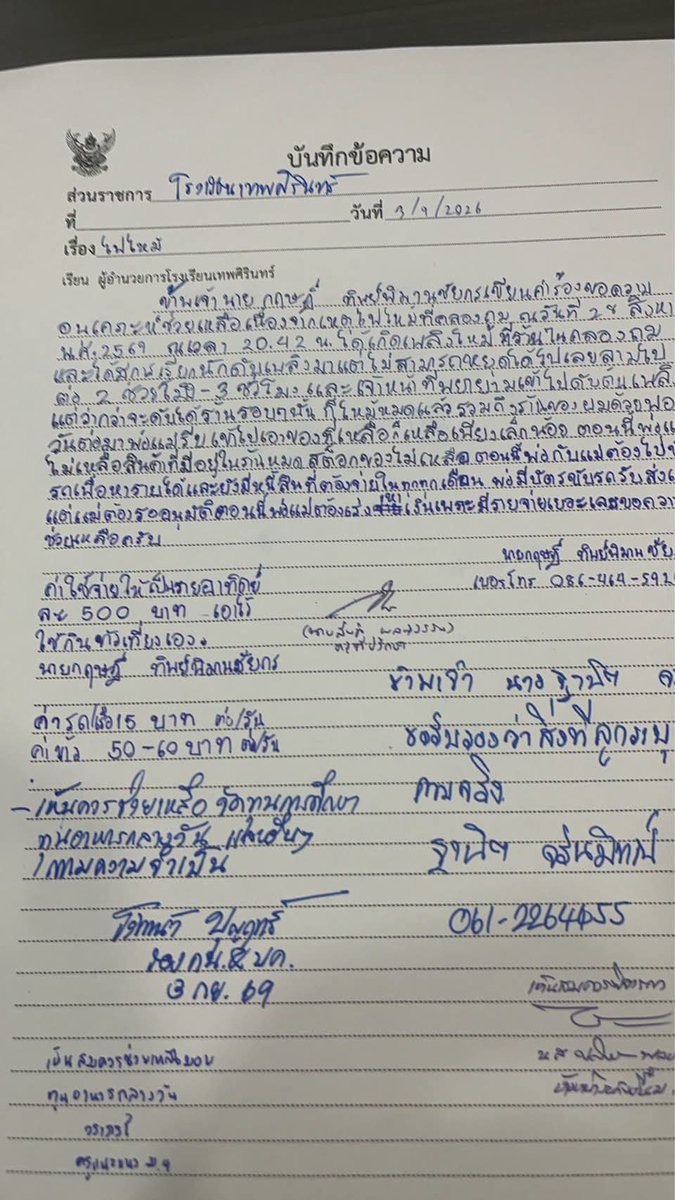 บันทึกข้อความ
ส่วนราชการ โรงเรียนเทพศิรินทร์
ที่ วันที่ 3/9/2026
เรื่อง ไฟไหม้
เรียน ผู้อำนวยการโรงเรียนเทพศิรินทร์
ข้าพเจ้า นาย กฤษฎิ์ ทิพย์พิมานชัยกร เขียนคำร้องขอความ
อนุเคราะห์ช่วยเหลือเนื่องจากเหตุไฟไหม้ที่คลองถม ณ วันที่ 28 สิงหา
พ.ศ. 2569 ณ เวลา 20.42 น. ได้เกิดเพลิงไหม้ ที่ร้านในคลองถม
และได้มีการเรียกนักดับเพลิงมาแต่ไม่สามารถหยุดได้ไปเลยลามไป
ต่อ 2 ชั่วโมง - 3 ชั่วโมง และเจ้าหน้าที่พยายามเข้าไปดับต้นเพลิ
แต่ว่ากว่าจะดับได้ร้านรอบๆนั้น ก็ไหม้หมดแล้วรวมถึงร้านของผมด้วยพอ
วันต่อมาพ่อแม่รีบเข้าไปเอาของที่เหลือก็เหลือเพียงเล็กน้อย ตอนนี้พ่อแ
ไม่เหลือสินค้าที่มีอยู่ในร้านหมด สต๊อกของไม่เหลือ ตอนนี้พ่อกับแม่ต้องไปขั
รถเพื่อหารายได้และยังมีหนี้สินที่ต้องจ่ายในทุกๆเดือน พ่อมีบัตรขับรถรับส่งแ
แต่แม่ต้องรออนุมัติตอนนี้พ่อแม่ต้องเร่ง เริ่นเพราะมีรายจ่ายเยอะเลยขอควา
ช่วยเหลือครับ
นายกฤษฎิ์ ทิพย์พิมานชัย
เบอร์โทร 086-464-592
ค่าใช้จ่ายให้เป็นรายอาทิตย์
ละ 500 บาท เอาไว้
ใช้กินข้าวเที่ยงเอง.
นายกฤษฎิ์ ทิพย์พิมานชัยกร
ครูที่ปรึกษา
ค่ารถเรือ 15 บาท ต่อ/วัน
ค่าข้าว 50-60 บาท ต่อ/วัน
ข้าพเจ้า นาง ฐานิฯ
ขอรับรองว่าสิ่งที่ลูกระบุ
ตามจริง
- เห็นควรช่วยเหลือ จัดทุนการศึกษา
ทุนอาหารกลางวัน และอื่นๆ
ตามความจำเป็น
ฐานิฯ
061-2264655
รอง กน.
3 กย. 69
เห็นสมควรช่วยเหลือมอบ
ทุนอาหารกลางวัน
ครูแนะแนว ม.4